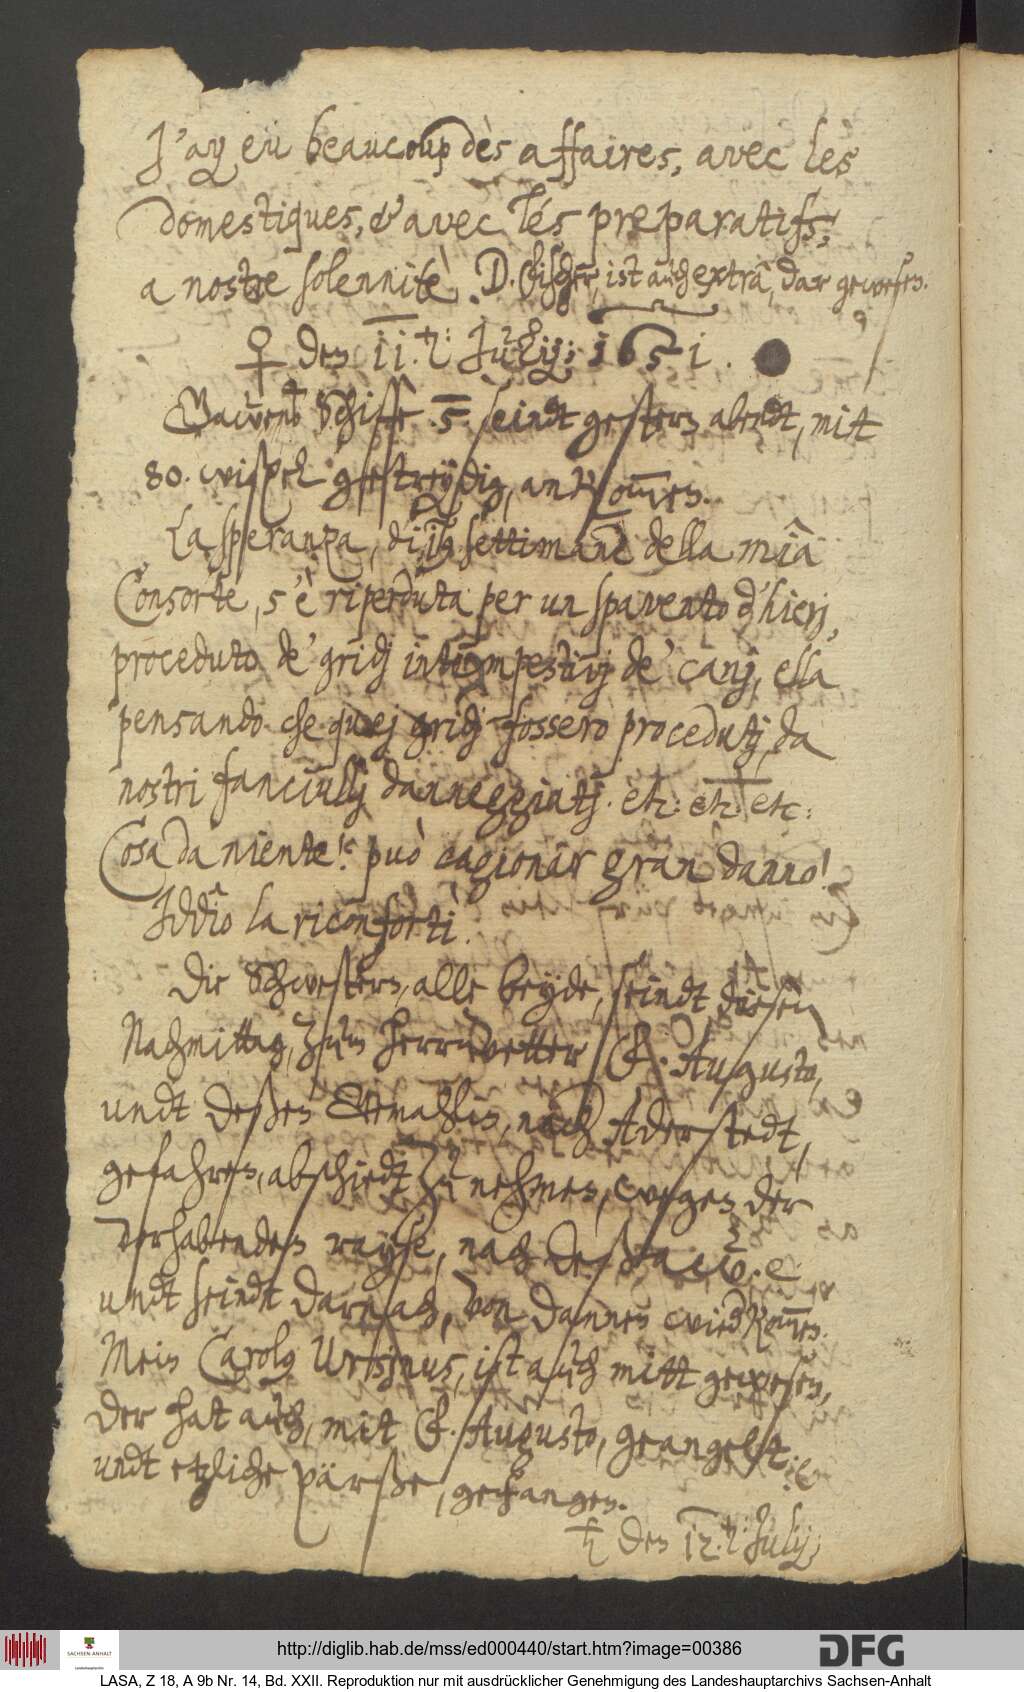 J'ay eü beaucoup dès affaires, avec lés
domestiques, & avec lés preparatifs,
a nostre solennitè. D. Fischer, ist auch extra, dar gewesen.
♀ den 11. t: July; 1651.
Schiffe 5. seindt gestern abendt, mitt
80. wispel gestreydig, ankommen.
La speranza, di settimane della mia
Consorte, s'è riperduta per un spavento d'hierj,
proceduto de' gridj intempestivj de' canj, ella
pensando che quej gridj fossero procedutj, da
nostri fanciullj danneggiatj. etc: etc: etc:
Cosa da niente! può cagionar gran danno!
Iddio la riconfortj.
Die Schwestern, alle beyde, seindt diesen
Nachmittag, zum herrnvettern F. Augusto,
undt deßen Gemahlin, nach Aderstedt,
gefahren, abschiedt zu nehmen, wegen der
vorhabenden rayse, nach Deßaw. et cetera
undt seindt darnach, von dannen wiedkommen.
Mein Carolus Ursinus, ist auch mitt gewesen,
der hat auch, mit F. Augusto, geangelt:
undt etzliche pärße, gefangen.
♄ den 12. t: July;
http://diglib.hab.de/mss/ed000440/start.htm?image=00386
SACHSEN-ANHALT
Landeshauptarchiv
DFG
LASA, Z 18, A 9b Nr. 14, Bd. XXII. Reproduktion nur mit ausdrücklicher Genehmigung des Landeshauptarchivs Sachsen-Anhalt